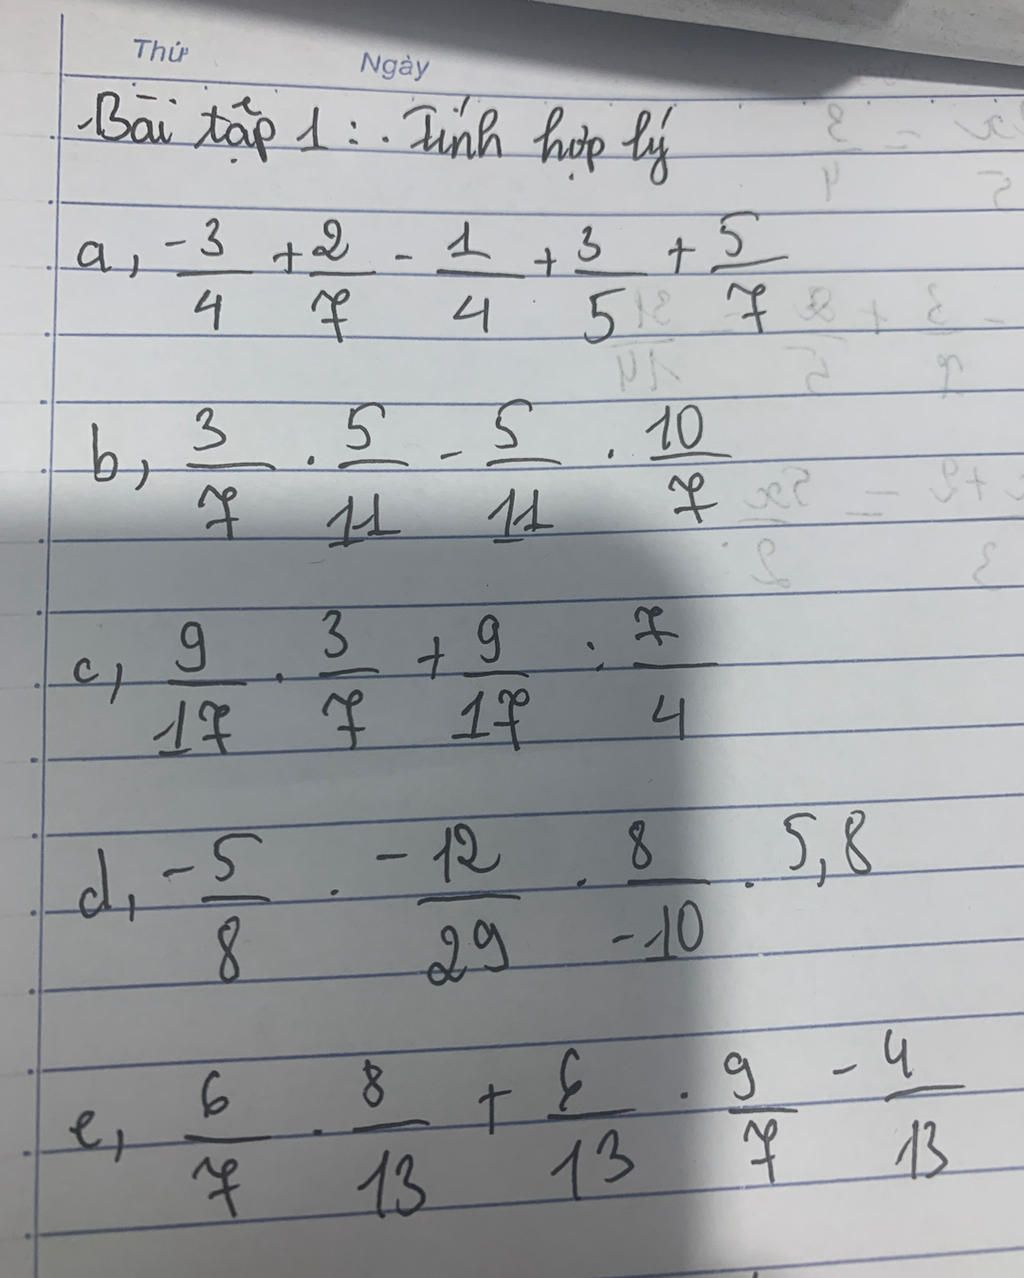 Thứ Ngày
Bài tập 1: Tính hợp lý
a, -3/4 + 2/7 - 1/4 + 3/5 + 5/7
b, 3/7 . 5/11 - 5/11 . 10/7
c, 9/17 . 3/7 + 9/17 : 7/4
d, -5/8 . -12/29 . 8/-10 . 5,8
e, 6/7 . 8/13 + 6/13 . 9/7 - 4/13